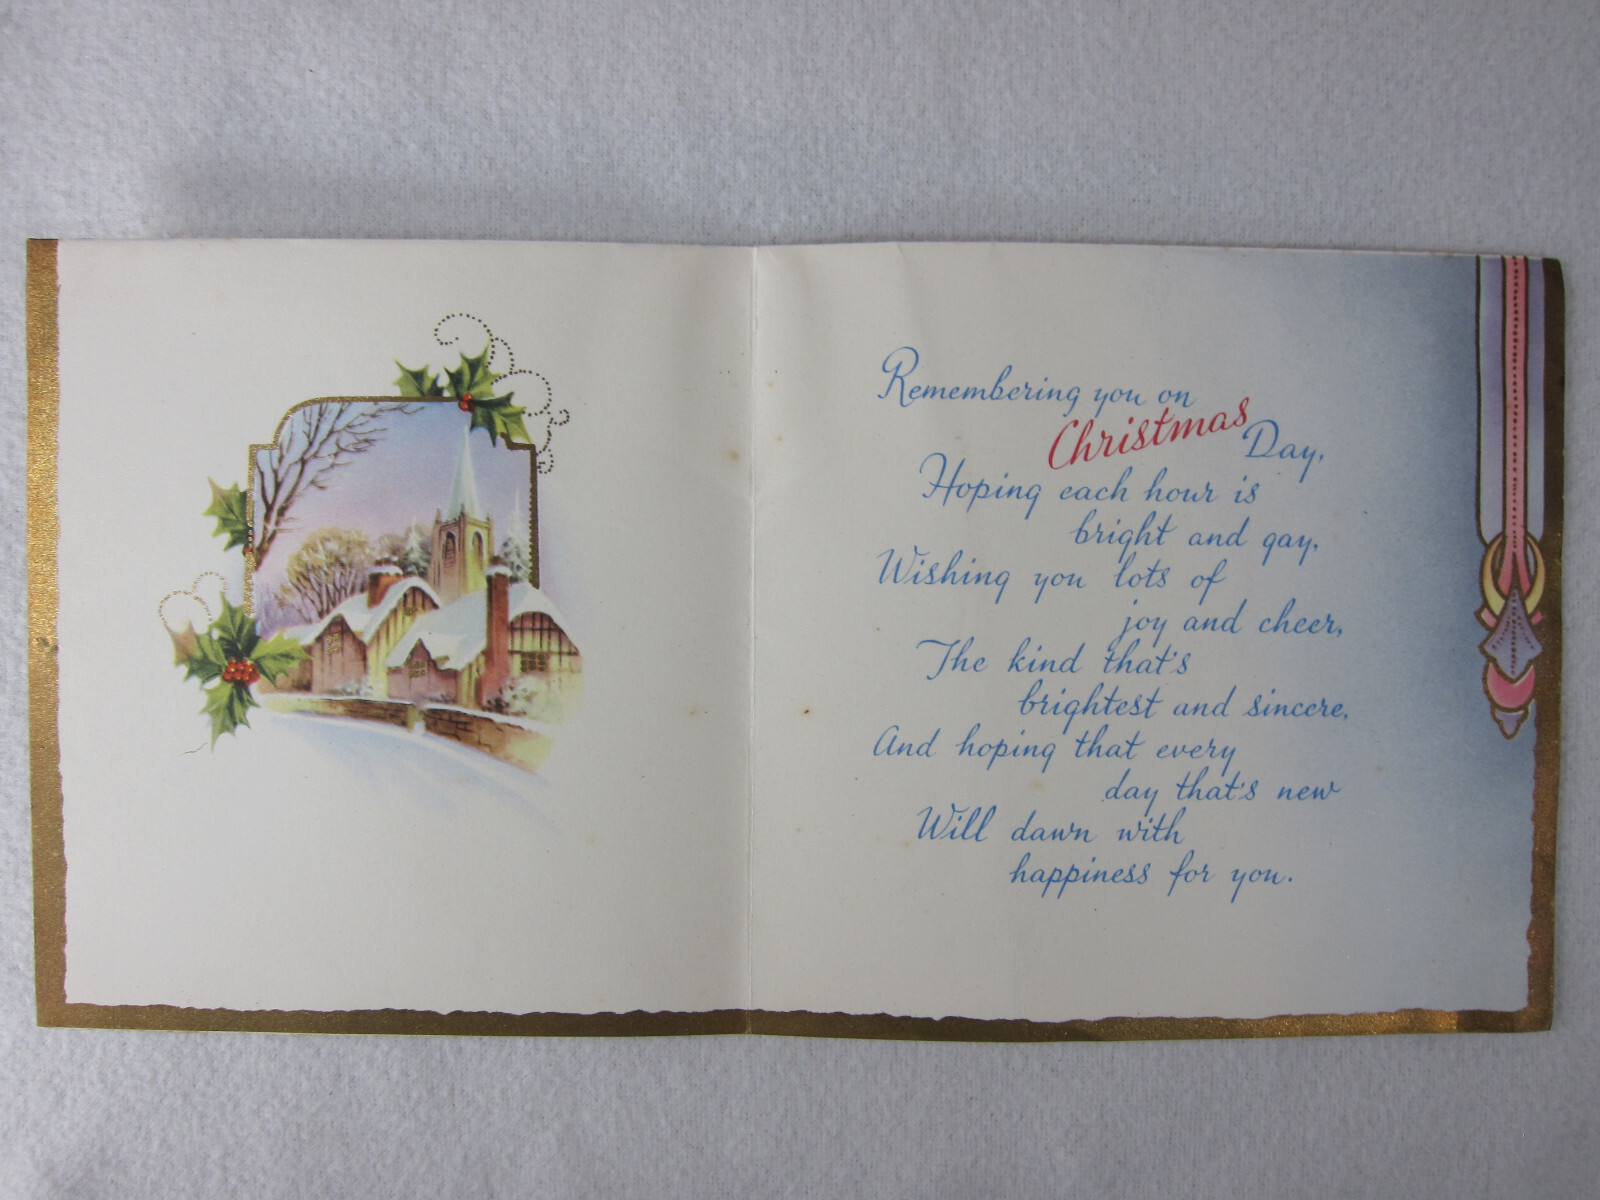 Remembering you on
Christmas Day,
Hoping each hour is
bright and gay,
Wishing you lots of
joy and cheer,
The kind that's
brightest and sincere,
And hoping that every
day that's new
Will dawn with
happiness for you.